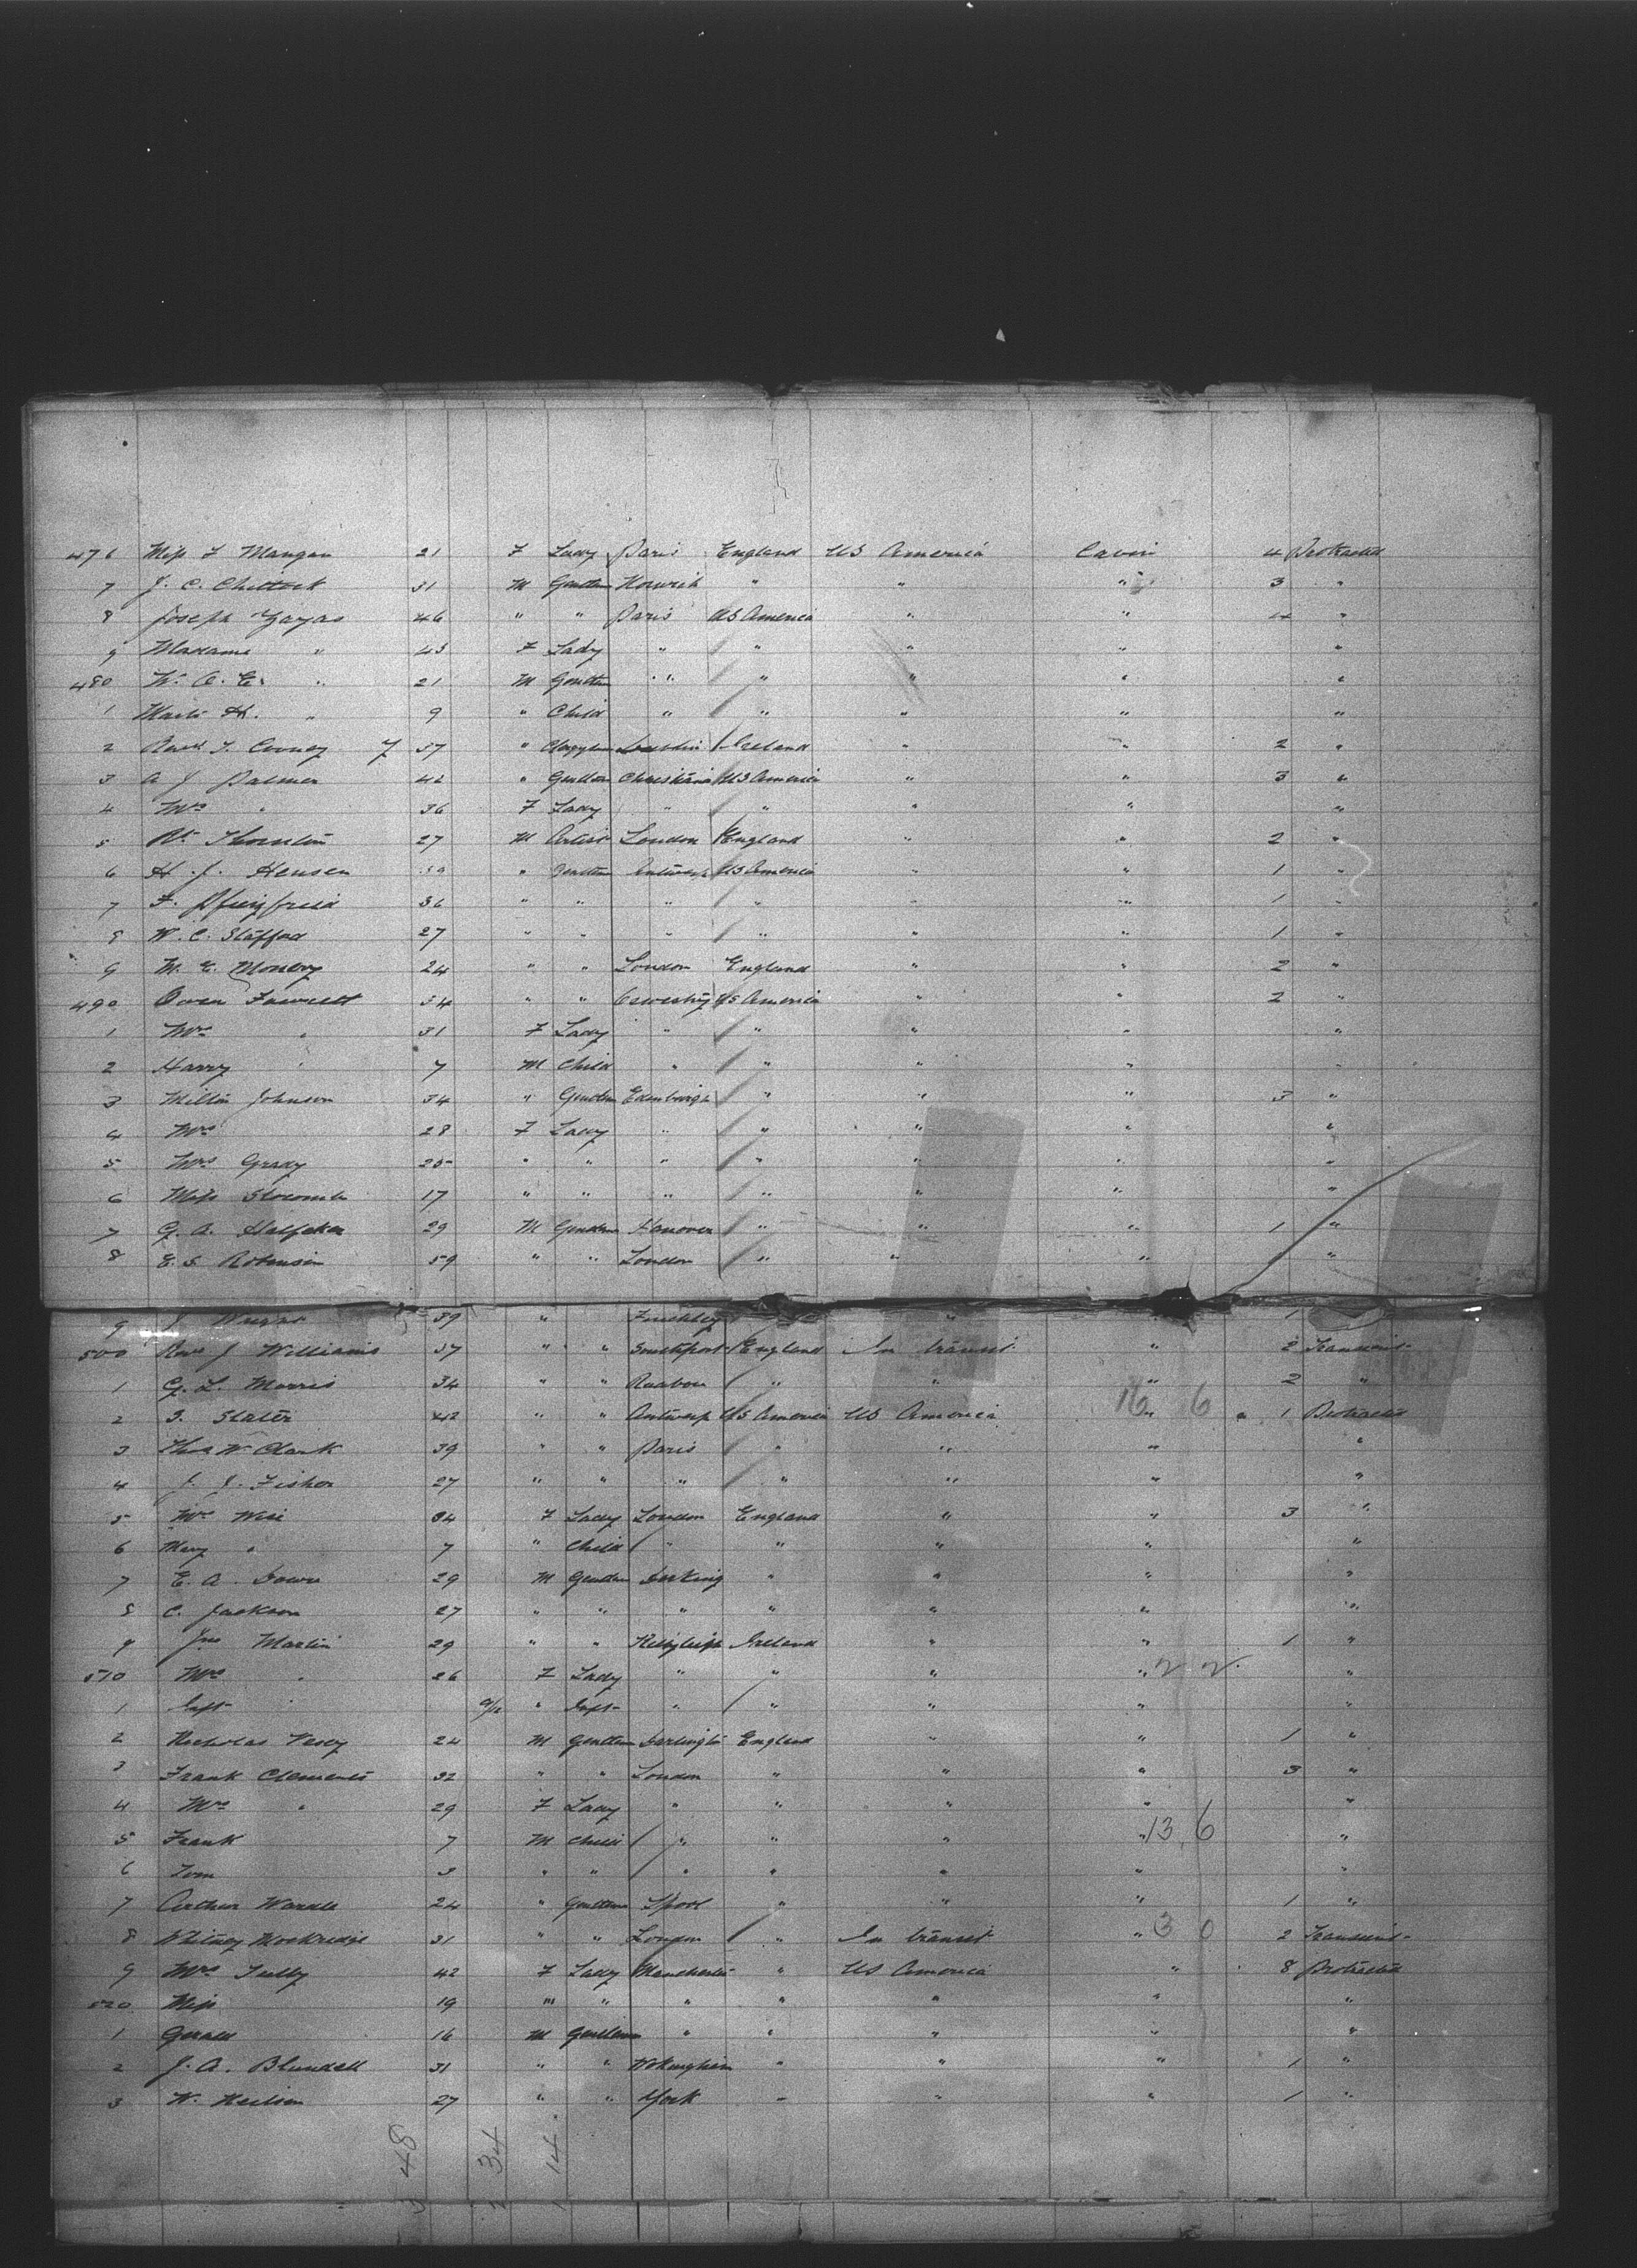 476 Miss F Mangan 21 F Lady Paris England US America Cabin 4 Protracted
7 J. C. Chittock 31 M Gentlem Norwich " " " 3 "
8 Joseph Zayas 46 " " Paris US America " " 4 "
9 Madame " 43 F Lady " " " " "
480 W. A. E. " 21 M Gentlem " " " " "
1 H. " 9 " Child " " " " "
2 Revd T. Cooney 37 " Clergyman Dublin Ireland " " 2 "
3 A J Palmer 42 " Gentlem Christiania US America " " 3 "
4 Mrs " 36 F Lady " " " " "
5 27 M Artist London England " " 2 "
6 H. J. Hensen 39 " Gentlem Antwerp US America " " 1 "
7 F. 36 " " " " " " 1 "
8 W. C. Stafford 27 " " " " " " 1 "
9 M. E. 24 " " London England " " 2 "
490 Owen Fawcett 34 " " Oswestry US America " " 2 "
1 Mrs " 31 F Lady " " " " "
2 Harry " 7 M Child " " " " "
3 Milton Johnson 34 " Gentlem Edinburgh " " " 3 "
4 Mrs 28 F Lady " " " " "
5 Mrs Grady 25 " " " " " " "
6 Miss Slocomb 17 " " " " " " "
7 G. A. 29 M Gentlem Hanover " " " 1 "
8 E. S. Robinson 59 " " London " " " "
9 J Wright 39 " Finchley " " 1
500 Revd J Williams 37 " " Southport England In transit " 2 Transient
1 G. L. Morris 34 " " Ruabon " " " 2 "
16 6
2 S. Slater 42 " " Antwerp US America US America " 1 Protracted
3 Thos W Clark 39 " " Paris " " " "
4 J. J. Fisher 27 " " " " " " "
5 Mrs 34 F Lady London England " " 3 "
6 Mary " 7 " Child " " " " "
7 E. A. 29 M Gentlem Dorking " " " "
8 C. Jackson 27 " " " " " " "
9 Jno Martin 29 " " Ireland " " 1 "
510 Mrs " 26 F Lady " " " " "
2 2
1 Inft " 9/12 " Inft " " " " "
2 Nicholas 24 M Gentlem Darlington England " " 1 "
3 Frank Clements 32 " " London " " " 3 "
4 Mrs " 29 F Lady " " " " "
5 Frank 7 M Child " " " " "
13 6
6 Tom 3 " " " " " " "
7 Arthur 24 " Gentlem Lpool " " " 1 "
8 Whitney Mockridge 31 " " London " In transit " 2 Transient
3 0
9 Mrs Tully 42 F Lady Manchester " US America " 8 Protracted
520 Miss 19 " " " " " " "
1 Gerald 16 M Gentlem " " " " "
2 J. A. Blundell 31 " " Wokingham " " " 1 "
3 W. Neilson 27 " " York " " " 1 "
48 34 14